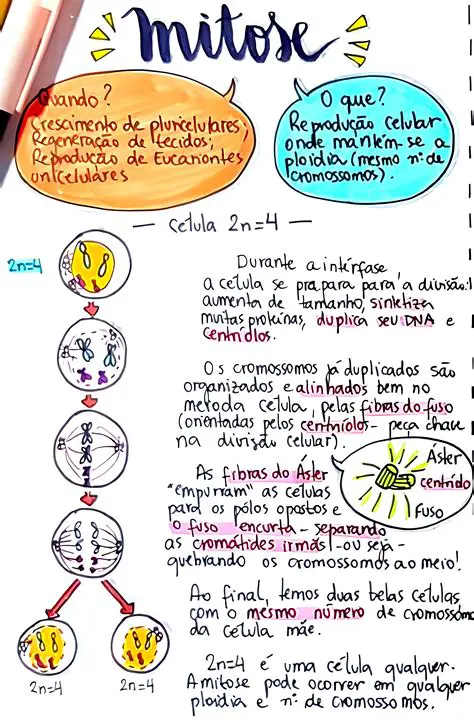 mitose
Quando?
Crescimento de pluricelulares;
Regeneração de tecidos;
Reprodução de Eucariontes
unicelulares
O que?
Reprodução celular
onde mantém-se a
ploidia (mesmo nº de
cromossomos).
— célula 2n=4 —
2n=4
Durante a intérfase
a célula se prepara para a divisão:
aumenta de tamanho, sintetiza
muitas proteínas, duplica seu DNA e
centríolos.
Os cromossomos já duplicados são
organizados e alinhados bem no
meio da célula, pelas fibras do fuso
(orientadas pelos centríolos - peça chave
na divisão celular).
Áster
centríolo
Fuso
As fibras do Áster
"empurram" as células
para os pólos opostos e
o fuso encurta - separando
as cromátides irmãs - ou seja -
quebrando os cromossomos ao meio!
Ao final, temos duas belas células
com o mesmo número de cromossomos
da célula mãe.
2n=4
2n=4
2n=4 é uma célula qualquer.
A mitose pode ocorrer em qualquer
ploidia e nº de cromossomos.